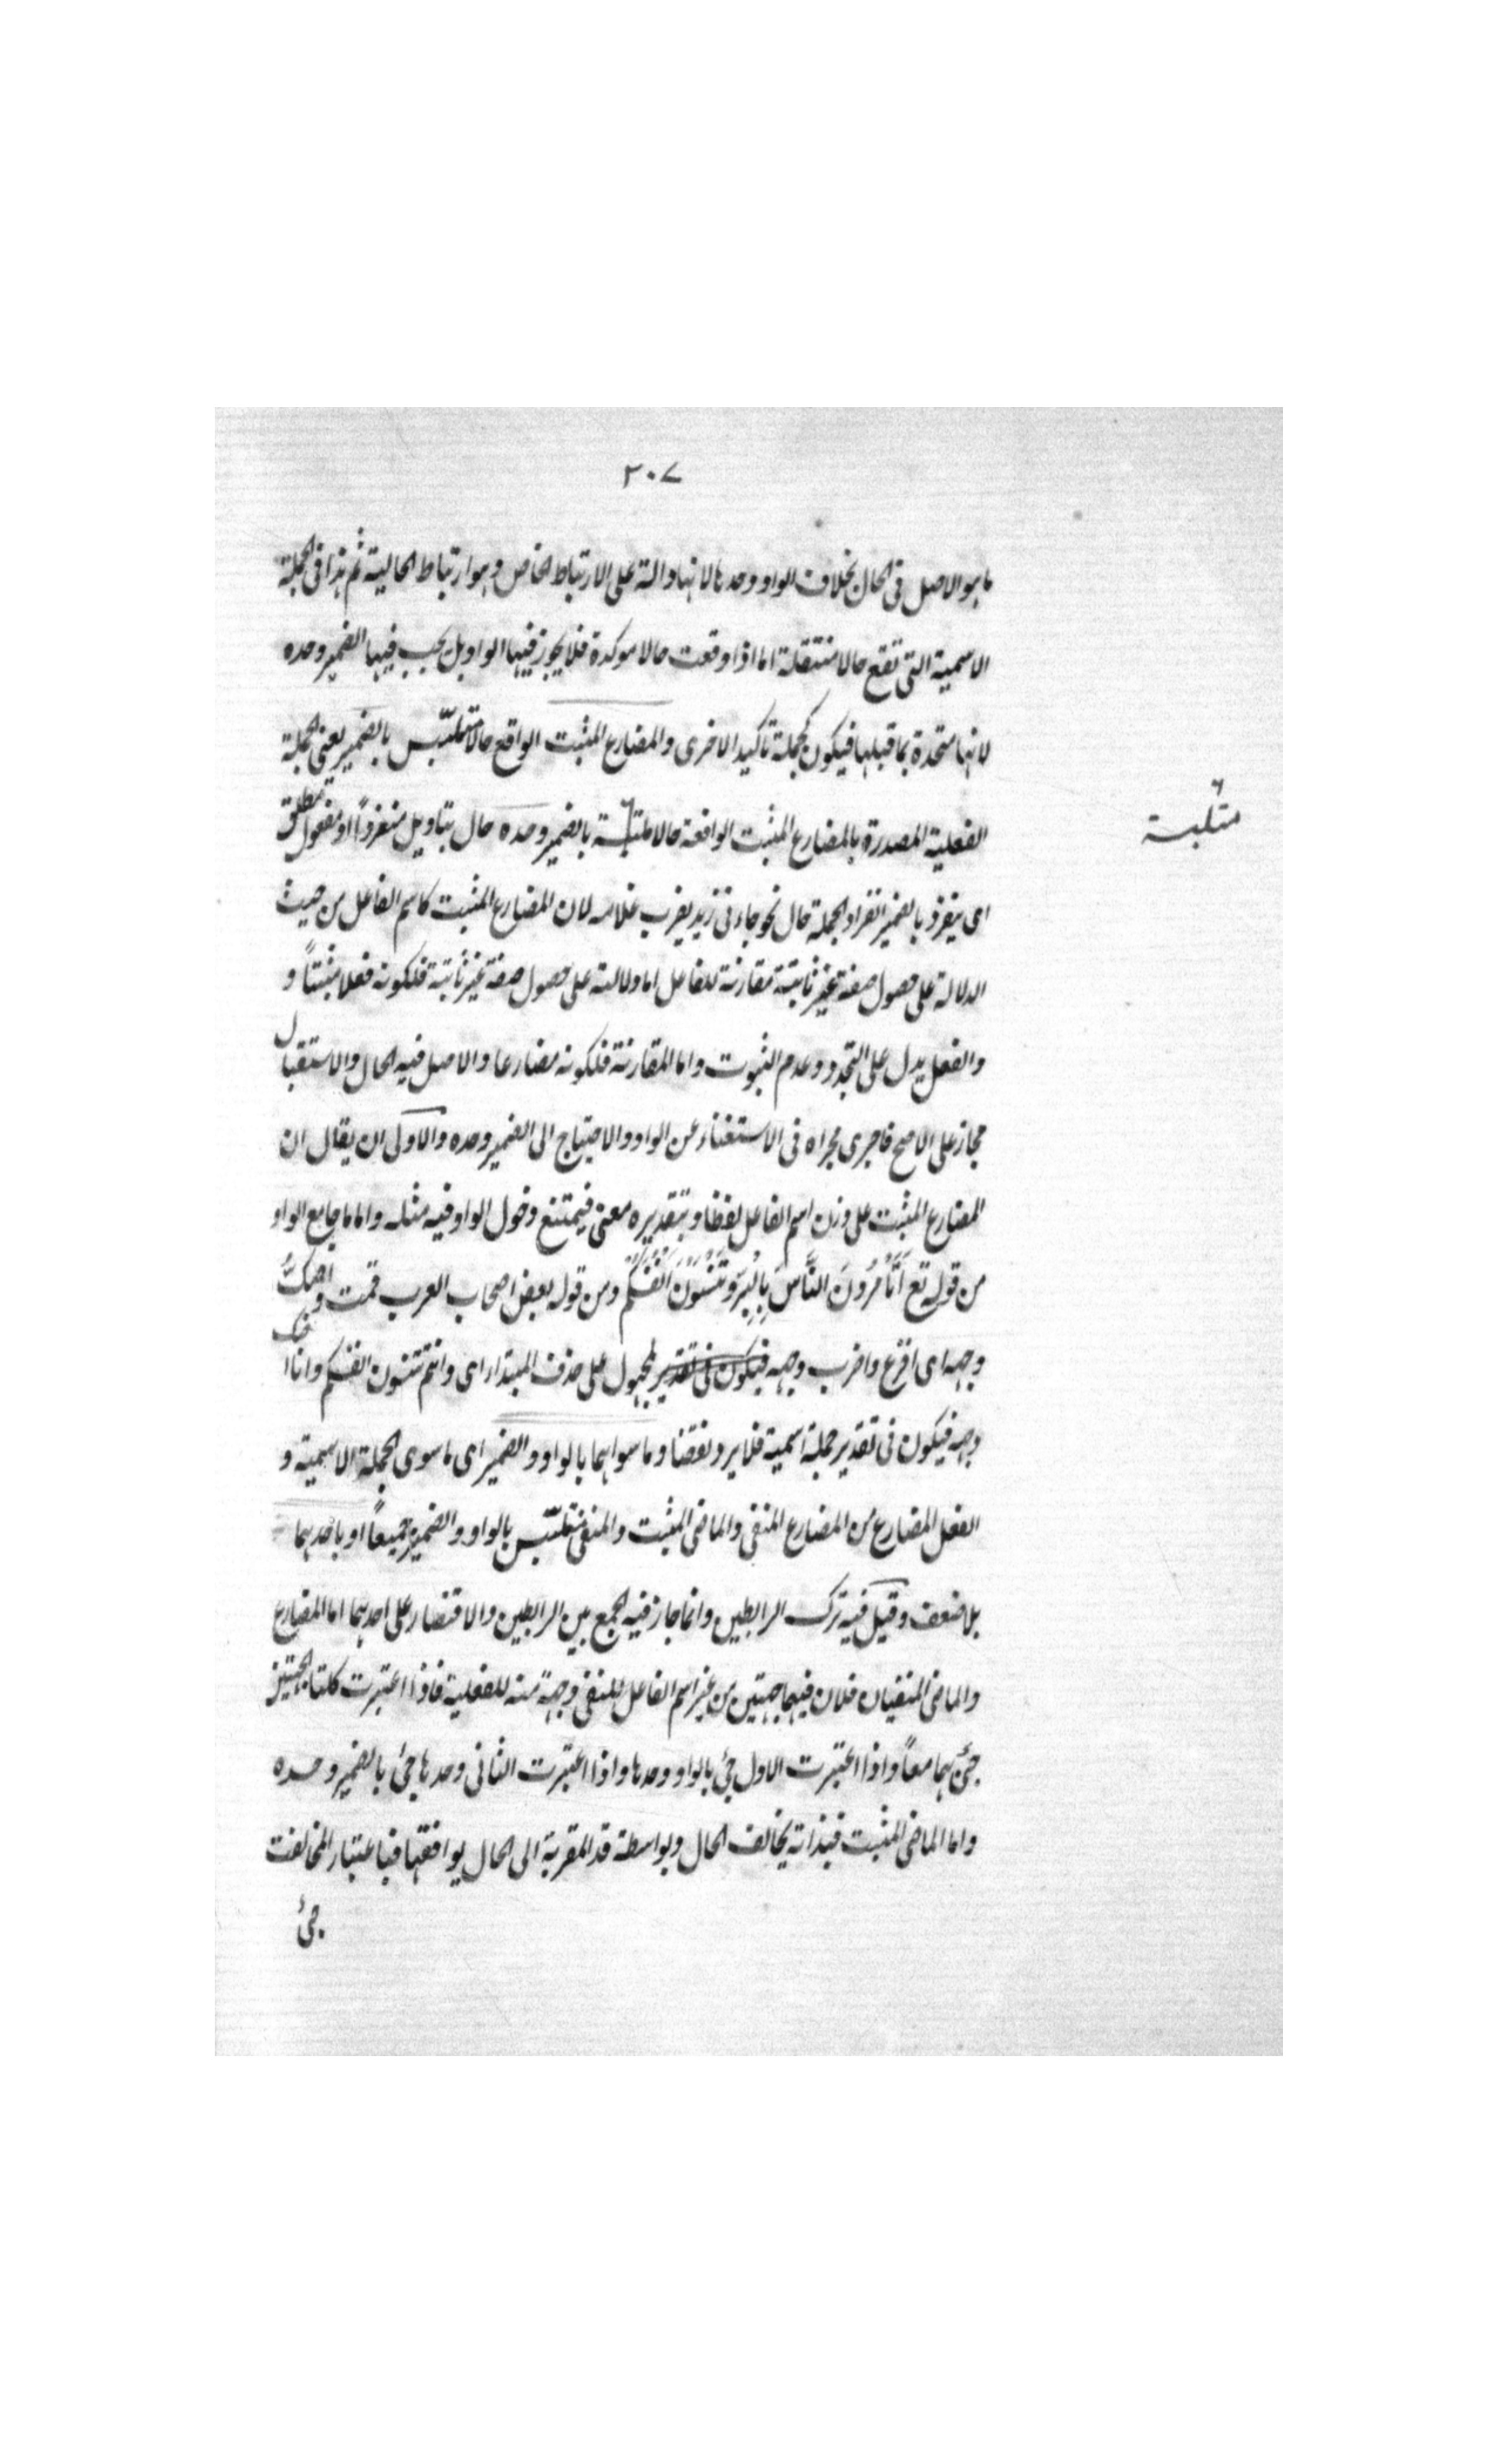 ٢٠٧
ما هو الاصل فى الحال بخلاف الواو وحدها لانها دالة على الارتباط الخاص وهو ارتباط الحالية ثم هذا فى الجملة
الاسمية التى تقع حالا منتقلة اما اذا وقعت حالا موكدة فلا يجوز فيها الواو بل يجب فيها الضمير وحده
لانها متحدة بما قبلها فيكون كجملة تأكيد الاخرى والمضارع المثبت الواقع حالا متلبّس بالضمير يعنى الجملة
الفعلية المصدرة بالمضارع المثبت الواقعة حالا ملتبسة بالضمير وحده حال بتاويل منفردًا او مفعول مطلق
متلبسة
اى ينفرد بالضمير انفراد الجملة حال نحو جاءنى زيد يضرب غلامه لان المضارع المثبت كاسم الفاعل من حيث
الدلالة على حصول صفة غير ثابتة مقارنة للفاعل اما دلالته على حصول صفة غير ثابتة فلكونه فعلا مثبتاً و
والفعل يدل على التجدد وعدم الثبوت واما المقارنة فلكونه مضارعا والاصل فيه الحال والاستقبال
مجاز على الاصح فاجرى مجراه فى الاستغناء عن الواو والاحتياج الى الضمير وحده والاولى ان يقال ان
المضارع المثبت على وزن اسم الفاعل لفظا وبتقديره معنى فيمتنع دخول الواو فيه مثله واما ما جامع الواو
من قوله تع اَتَأمُرُونَ النَّاسَ بِالْبِرِّ وَتَنْسَوْنَ اَنْفُسَكُم ومن قول بعض اصحاب العرب قمت واصكُّ
وجهه اى اقرع واضرب وجهه فيكون فى تقدير فمحمول على حذف المبتداء اى وانتم تنسون انفسكم وانا اصك
وجهه فيكون فى تقدير جملة اسمية فلا يرد نقضا وما سواهما بالواو والضمير اى ما سوى الجملة الاسمية و
الفعل المضارع من المضارع المنفى والماضى المثبت والمنفى متلبّس بالواو والضمير جميعاً او باحدهما
بلا ضعف وقيل فيه ترك الرابطين وانما جاز فيه الجمع بين الرابطين والاقتصار على احدهما اما المضارع
والماضى المنفيان فلان فيهما جهتين من غير اسم الفاعل للنفى وجهة منه للفعلية فاذا اعتبرت كلتا الجهتين
جئ بهما معاً واذا اعتبرت الاول جئ بالواو وحدها واذا اعتبرت الثانى وحدها جئ بالضمير وحده
واما الماضى المثبت فبذاته يخالف الحال وبواسطة قد المقربة الى الحال يوافقها فباعتبار المخالفت
جئ